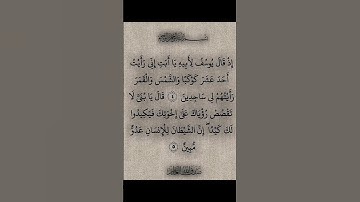 إِذْ قَالَ يُوسُفُ لِأَبِيهِ يَا أَبَتِ إِنِّي رَأَيْتُ
أَحَدَ عَشَرَ كَوْكَبًا وَالشَّمْسَ وَالْقَمَرَ
رَأَيْتُهُمْ لِي سَاجِدِينَ ٤ قَالَ يَا بُنَيَّ لَا
تَقْصُصْ رُؤْيَاكَ عَلَىٰ إِخْوَتِكَ فَيَكِيدُوا
لَكَ كَيْدًا ۖ إِنَّ الشَّيْطَانَ لِلْإِنسَانِ عَدُوٌّ
مُّبِينٌ ٥